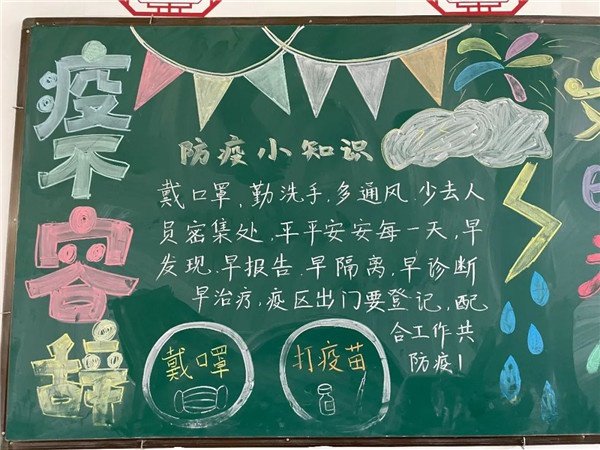 疫不容
防疫小知识
戴口罩,勤洗手,多通风,少去人
员密集处,平平安安每一天,早
发现.早报告.早隔离,早诊断
早治疗,疫区出门要登记,配
合工作共
防疫!
戴口罩
打疫苗